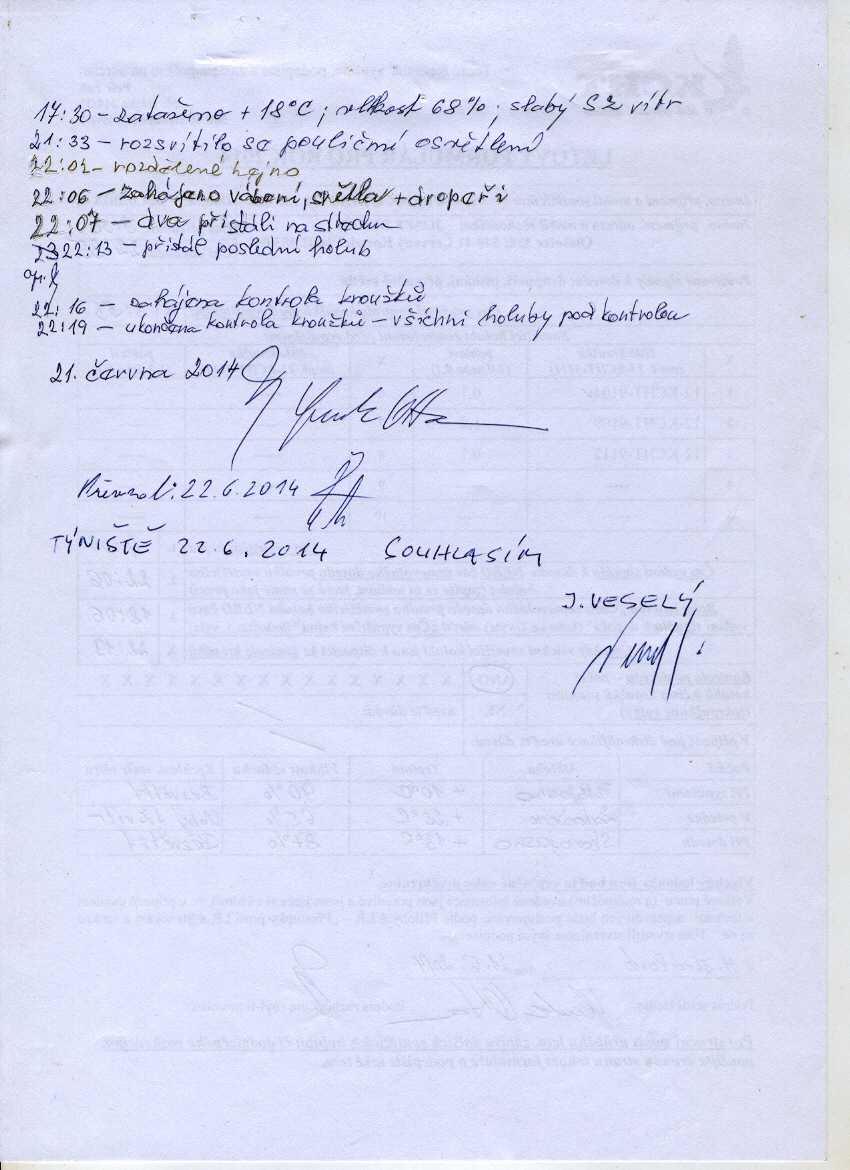 17:30 – zataženo + 18°C; vlhkost 68%; slabý SZ vítr
21:33 – rozsvítilo se pouliční osvětlení
22:01 – rozdělené hejno
22:06 – zahájeno vábení, světla + dropeři
22:07 – dva přistáli na střechu
22:13 – přistál poslední holub
22:16 – zahájena kontrola kroužků
22:19 – ukončena kontrola kroužků – všichni holuby pod kontrolou
21. června 2014
Převzal: 22.6.2014
TÝNIŠTĚ 22.6.2014 SOUHLASÍM
J. VESELÝ